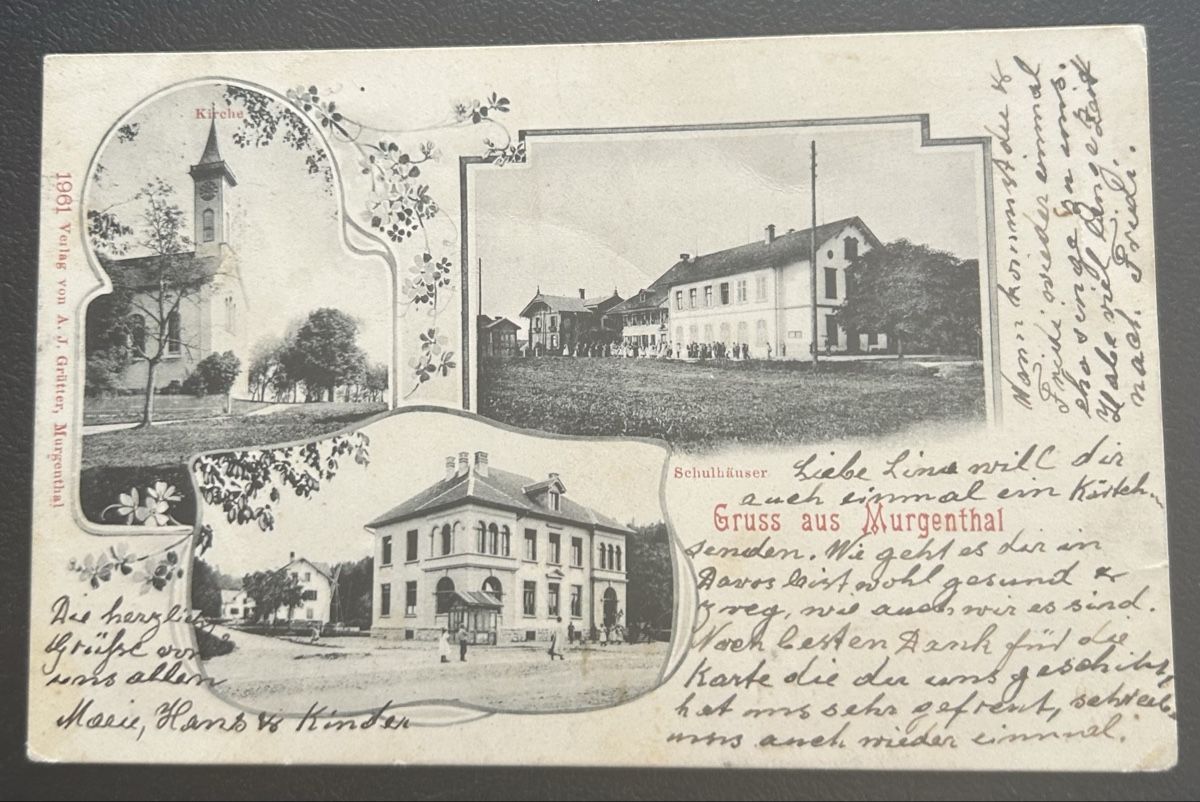 Kirche
1961 Verlag von A. J. Grütter, Murgenthal
Schulhäuser
Gruss aus Murgenthal
Liebe Lina will dir
auch einmal ein Kärtch-
senden. Wie geht es dir in
Davos bist wohl gesund &
zweg, wie auch wir es sind.
Noch besten Dank für die
Karte die du uns geschikt,
hat uns sehr gefreut, schreib
uns auch wieder einmal.
Wann kommst du &
Fridi wieder einmal
cho singe zu uns.
Habe viel lange Zeit
nach Fridi.
Die herzlich
Grüße von
uns allen
Hans & Kinder